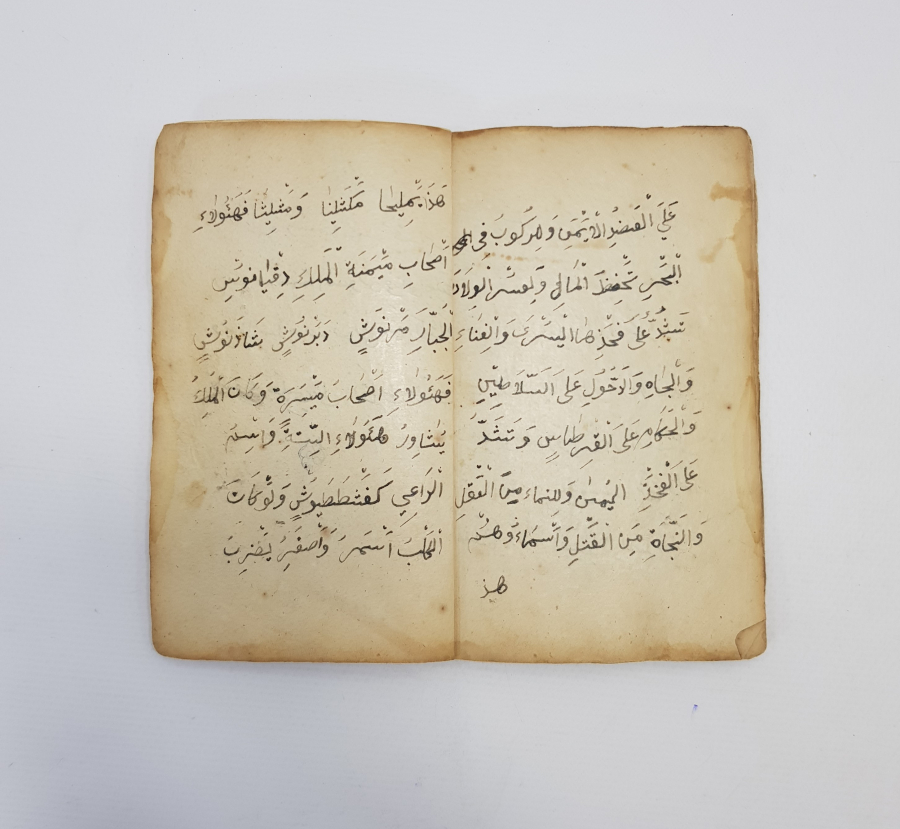 عَلَى الْعَضُدِ الْاَيْمَنِ وَلِرُكُوبَ فِى
الْبَحْرِ تَحْفِظَ الْمَالِ وَلِعُسْرِ الْوِلَادَ
تَشُدُّ عَلَى فَخْذِهَا الْيَسْرَى وَالْغِنَاءِ
وَالْجَاهِ وَالدَّخُولِ عَلَى السَّلَاطِيْنِ
وَالْحُكَّامِ عَلَى الْقِرْطَاسِ وَتَشُدَّ
عَلَى الْفَخْذِ وَللنماء مِنَ الْعَقْلِ
وَالنَّجَاةِ مِنَ الْقَتْلِ وَاَسْمَاءُ وهُمْ
هذ
هَذَ يَمْلِيخَا مَكْثَلِينَا وَمَثْلِيثَا فَهَئُولَاءِ
اَصْحَابِ مَيْمَنَةِ الْمَلِكِ دِقْيَانُوسِ
الْجَبَّارِ مَرْنُوَشِ دَبَرْنُوشِ شَاذَنُوشِ
فَهَئُولَاءِ اَصْحَابَ مَيْسَرَةً وَكَانَ الْمَلِكُ
يُشَاوِرُ هَئُولَاءِ السِّتَّةِ
الْرَاعِي كَفَشْطَطَيُوشِ وَلَوْ كَانَ
الْكَلْبَ اَسْمَرَ وَاَصْفَرِ يَضْرِبَ